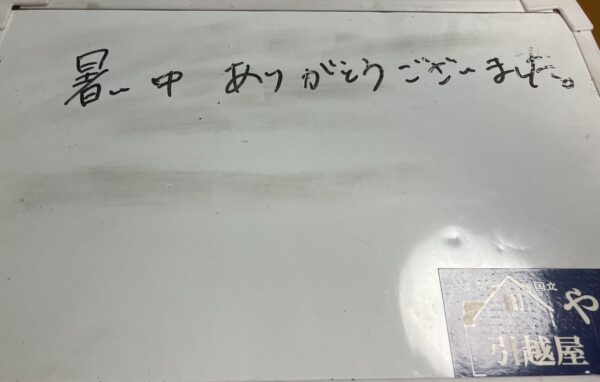 暑い中 ありがとうございました。
国立
や
引越屋